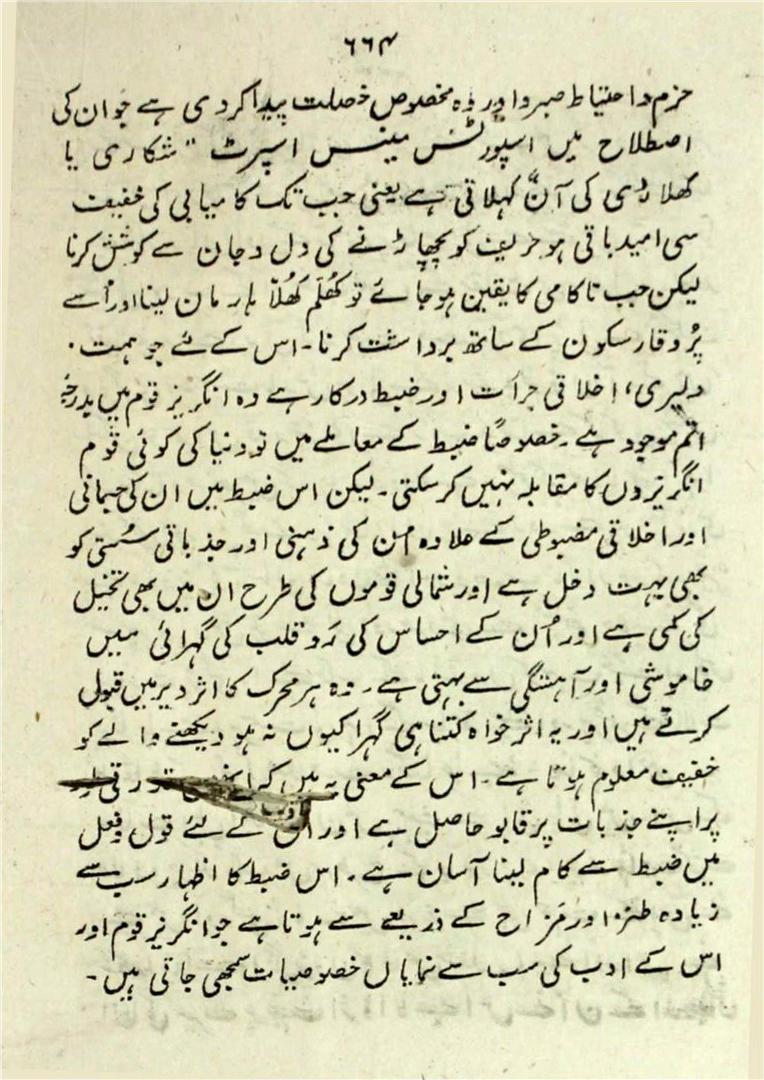 ۶۶۴
حزم و احتیاط صبر و اور وہ مخصوص خصلت پیدا کردی ہے جو ان کی
اصطلاح میں اسپورٹس مینس اسپرٹ "شکاری یا
کھلاڑی کی آن" کہلاتی ہے یعنی جب تک کامیابی کی خفیف
سی امید باقی ہو حریف کو پچھاڑنے کی دل و جان سے کوشش کرنا
لیکن جب ناکامی کا یقین ہو جائے تو کھُلم کھُلا ہار مان لینا اور اُسے
پُر وقار سکون کے ساتھ برداشت کرنا۔ اس کے لئے جو ہمت ۰
دلیری، اخلاقی جرأت اور ضبط درکار ہے وہ انگریز قوم میں بدرجۂ
اتم موجود ہے۔ خصوصاً ضبط کے معاملے میں تو دنیا کی کوئی قوم
انگریزوں کا مقابلہ نہیں کرسکتی۔ لیکن اس ضبط میں ان کی جسمانی
اور اخلاقی مضبوطی کے علاوہ اُن کی ذہنی اور جذباتی سُستی کو
بھی بہت دخل ہے اور شمالی قوموں کی طرح ان میں بھی تخیل
کی کمی ہے اور اُن کے احساس کی رَو قلب کی گہرائی میں
خاموشی اور آہستگی سے بہتی ہے۔ وہ ہر محرک کا اثر دیر میں قبول
کرتے ہیں اور یہ اثر خواہ کتنا ہی گہرا کیوں نہ ہو دیکھنے والے کو
خفیف معلوم ہوتا ہے۔ اس کے معنی یہ ہیں کہ انھیں قدرتی طور
پر اپنے جذبات پر قابو حاصل ہے اور ان کے لئے قول و فعل
میں ضبط سے کام لینا آسان ہے۔ اس ضبط کا اظہار سب سے
زیادہ طنز اور مَزاح کے ذریعے سے ہوتا ہے جو انگریز قوم اور
اس کے ادب کی سب سے نمایاں خصوصیات سمجھی جاتی ہیں۔